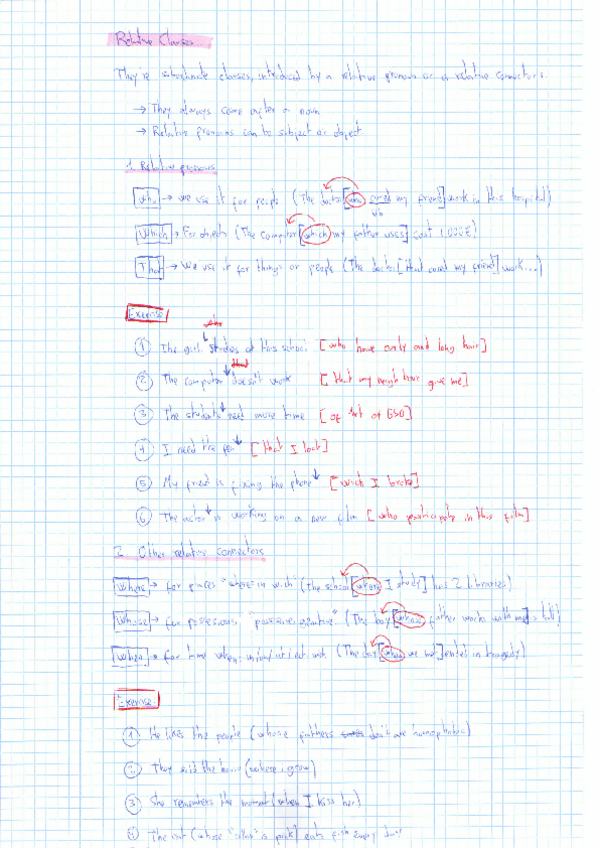 Relative Clauses
They're subordinate clauses, introduced by a relative pronoun or a relative connectors.
→ They always come after a noun
→ Relative pronouns can be subject or object
1. Relative pronouns
Who → we use it for people (The doctor [who cured my friend] work in this hospital)
vb
Which → For objects (The computer [which my father uses] cost 1.000€)
That → We use it for things or people (The doctor [that cured my friend] work...)
Exercise
who
① The girl studies at this school [who have curly and long hair]
that
② The computer doesn't work [that my neighbour give me]
③ The students need more time [of 1st of ESO]
④ I need the pen [that I lost]
⑤ My friend is fixing the phone [wich I broke]
⑥ The actor is working on a new film [who participate in this film]
2. Other relative connectors
Where → for places (The school [where I study] has 2 libraries)
Whose → for possessions (The boy [whose father works with me] is tall)
When → for time (The day [when we met] ended in tragedy)
Exercise
① He likes the people (whose fathers don't are homophobic)
② They sold the house (where I grow)
③ She remembers the moment (when I kiss her)
④ The cat (whose is pink) eats fish every day